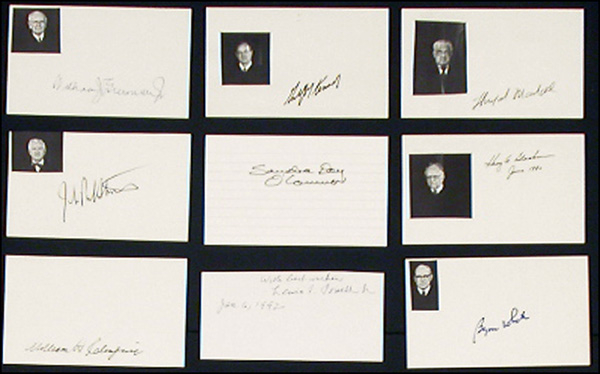 William J. Brennan Jr.
Thurgood Marshall
Sandra Day
O'Connor
Harry A. Blackmun
June 1991
William H. Rehnquist
With best wishes
Lewis F. Powell Jr
Jan 6, 1992
Byron White